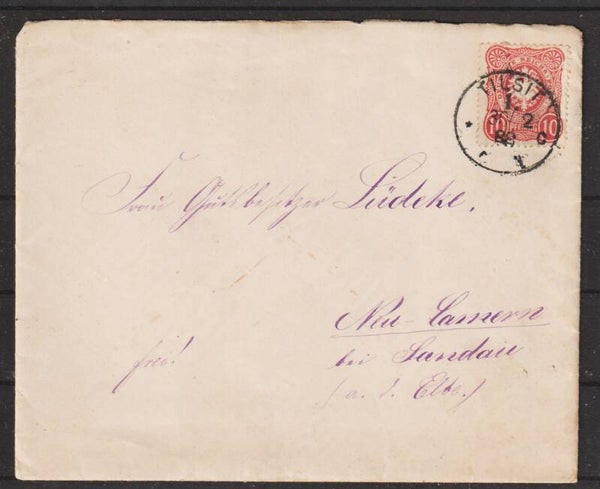 TILSIT
1
2
C
10 10
Frau Gutsbesitzer Lüdeke.
Neu-Camern
frei!
bei Sandau
(a. d. Elbe.)